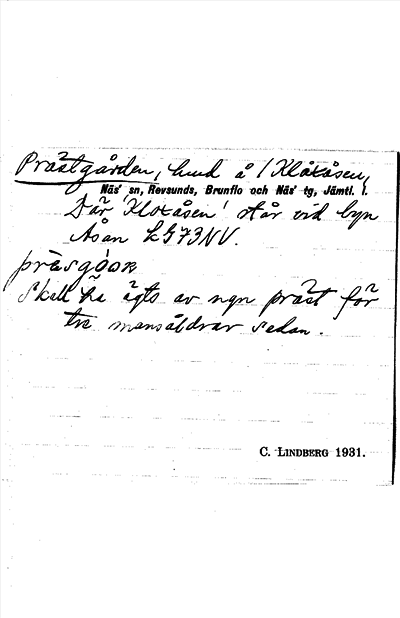 Prästgården, hmd å 1 Klåxåsen,
Näs' sn, Revsunds, Brunflo och Näs' tg, Jämtl. l.
Där 'Kloxåsen' står vid byn
Åsan k573NV.
prèsgóɑɳ
Skall ha ägts av ngn präst för
tre mansåldrar sedan.
C. LINDBERG 1931.